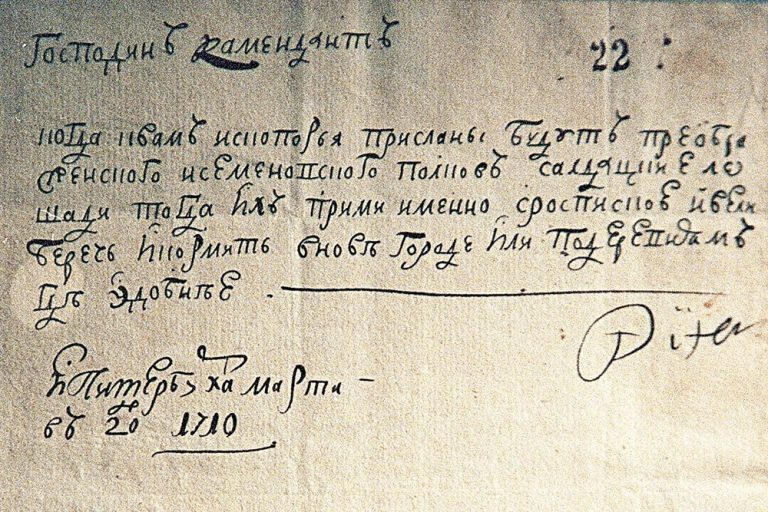 Господинъ камендантъ
22
когда квамъ испопорья присланы будутъ преобра
женского исеменовского полковъ салдацкие ло
шади тогда ихъ прими именно сроспискою ивели
беречь икормить вновъ городе или подеревнямъ
гдѣ удобнѣе .
Piter
ИПитербурха марта
въ 20 1710